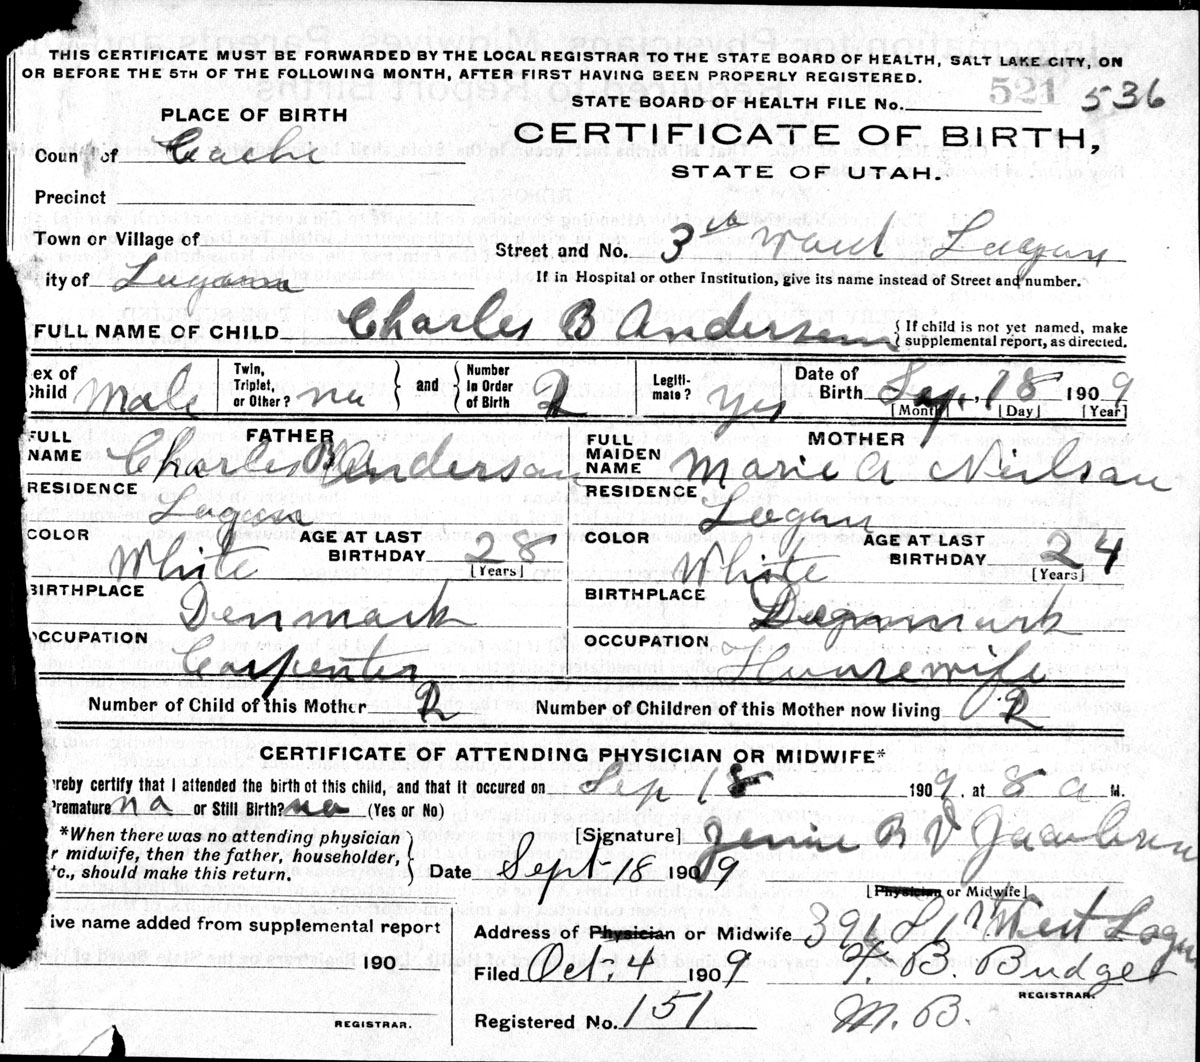 THIS CERTIFICATE MUST BE FORWARDED BY THE LOCAL REGISTRAR TO THE STATE BOARD OF HEALTH, SALT LAKE CITY, ON
OR BEFORE THE 5TH OF THE FOLLOWING MONTH, AFTER FIRST HAVING BEEN PROPERLY REGISTERED.
STATE BOARD OF HEALTH FILE No. 521 536
PLACE OF BIRTH
CERTIFICATE OF BIRTH,
STATE OF UTAH.
Coun of Cache
Precinct
Town or Village of
Street and No. 3th ward Logan
ity of Logan
If in Hospital or other Institution, give its name instead of Street and number.
FULL NAME OF CHILD Charles B Anderson { If child is not yet named, make supplemental report, as directed.
ex of Child Male Twin, Triplet, or Other? no and Number In Order of Birth 2 Legiti-mate? yes Date of Birth Sep, 18 1909
[Month] [Day] [Year]
FATHER MOTHER
FULL NAME Charles B Anderson FULL MAIDEN NAME Marie A Neilson
RESIDENCE Logan RESIDENCE Logan
COLOR White AGE AT LAST BIRTHDAY 28 [Years] COLOR White AGE AT LAST BIRTHDAY 24 [Years]
BIRTHPLACE Denmark BIRTHPLACE
OCCUPATION Carpenter OCCUPATION Housewife
Number of Child of this Mother 2 Number of Children of this Mother now living 2
CERTIFICATE OF ATTENDING PHYSICIAN OR MIDWIFE*
reby certify that I attended the birth of this child, and that it occured on Sep 18 1909, at 8 a M.
Premature no or Still Birth? no (Yes or No)
*When there was no attending physician
r midwife, then the father, householder,
tc., should make this return.
[Signature] B V
Date Sept-18 1909
[Physician or Midwife]
ive name added from supplemental report
190
REGISTRAR.
Address of Physician or Midwife West Logan
Filed Oct. 4 1909 B. Budge
REGISTRAR.
Registered No. 151